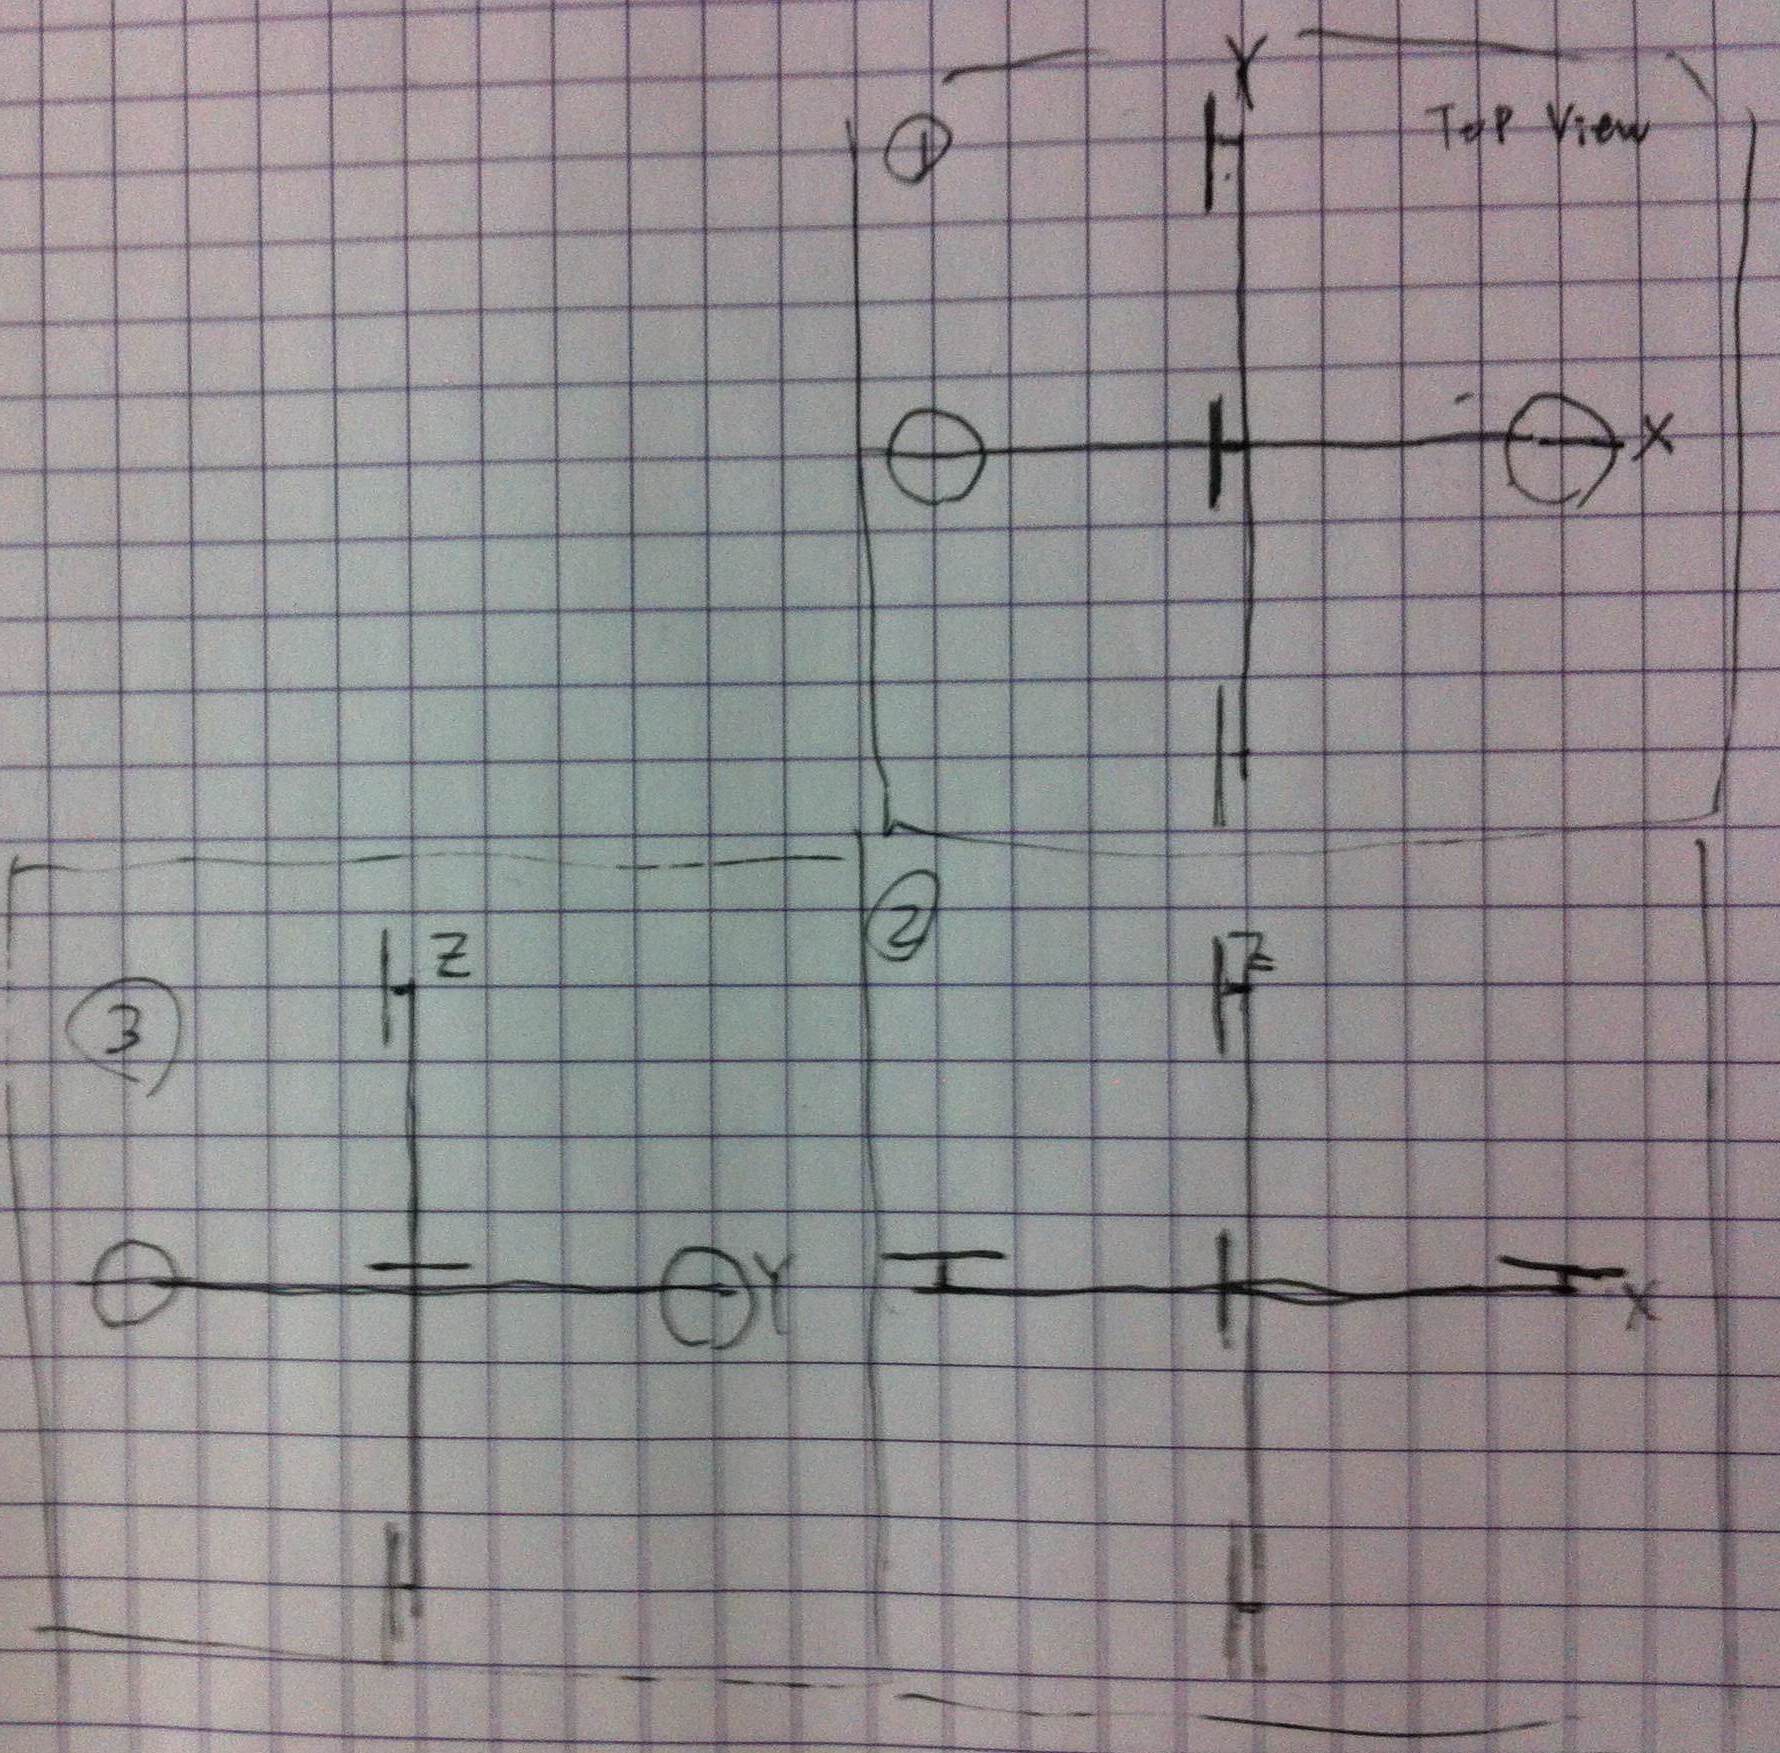 Y
① Top View
X
②
Z Z
③
Y X